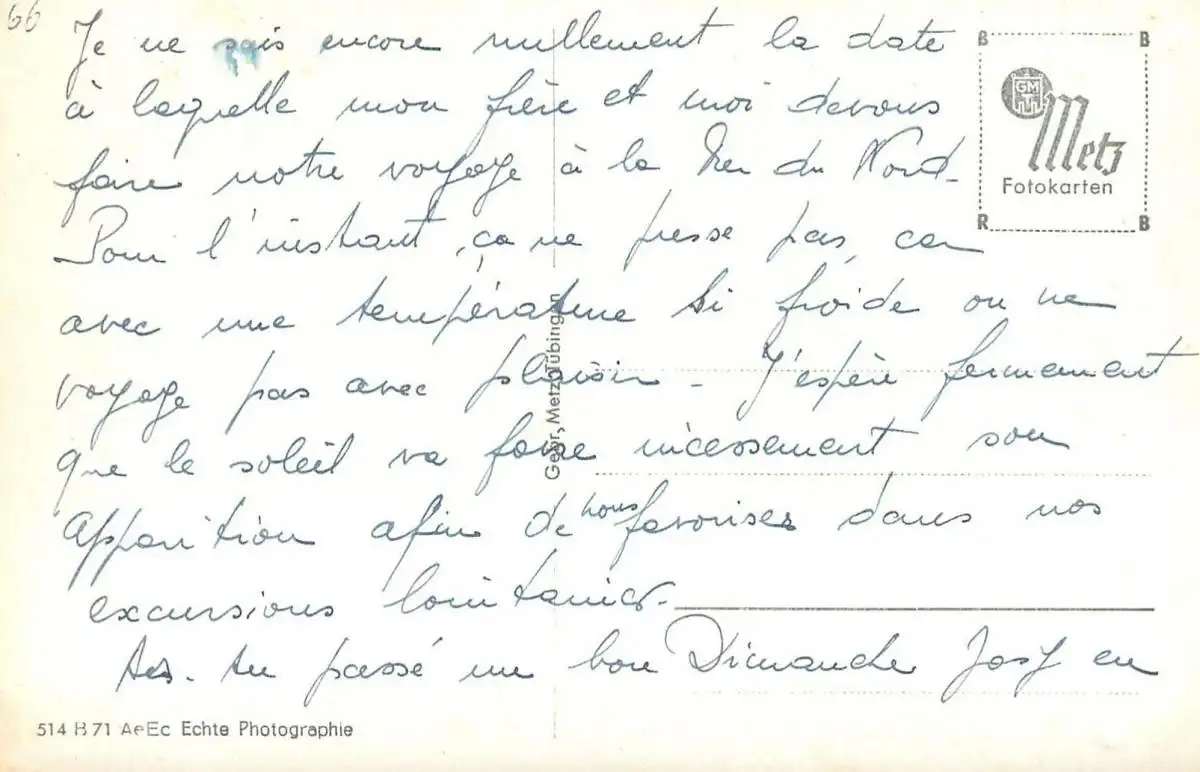 66
Je ne sais encore nullement la date
à laquelle mon frère et moi devons
faire notre voyage à la Mer du Nord.
Pour l'instant, ça ne presse pas, car
avec une température si froide on ne
voyage pas avec plaisir - J'espère fermement
que le soleil va faire incessement son
apparition afin de nous favoriser dans nos
excursions lointaines.
As-tu passé un bon Dimanche Josy en
B B
GM
Metz
Fotokarten
R B
Gebr. Metz, Tübingen
514 B 71 AeEc Echte Photographie